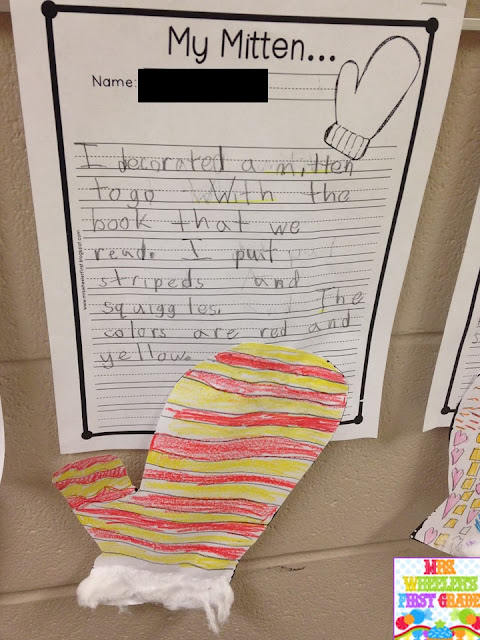 My Mitten...
Name:
I decorated a mitten
to go With the
book that we
read. I put
stripeds and
squiggles. The
colors are red and
yellow.
MRS.
WHEELER'S
FIRST GRADE